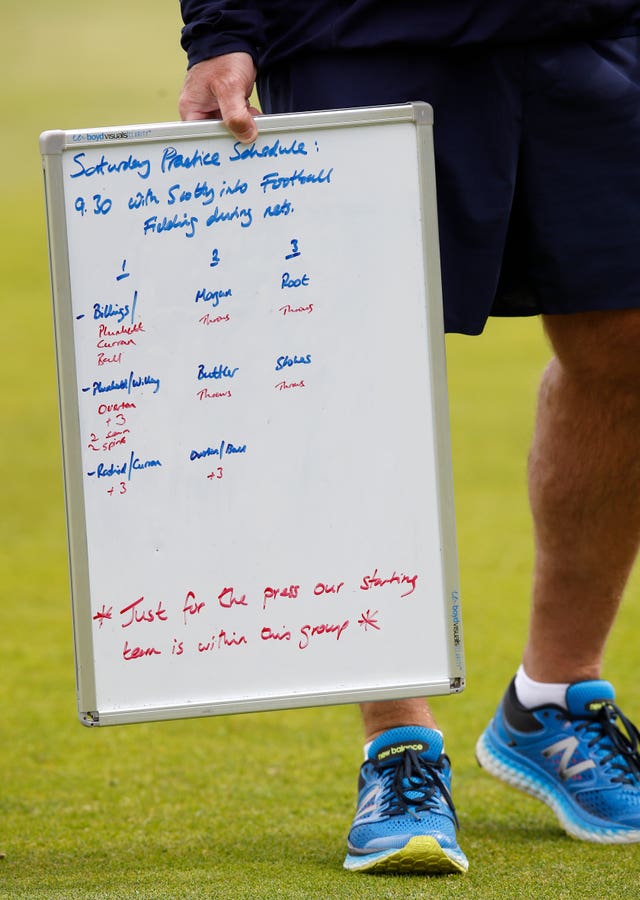 boydvisuals
Saturday Practice Schedule:
9.30 with Scotty into Football
Fielding during nets.
1 2 3
- Billings/ Morgan Root
Plunkett Throws Throws
Curran
Ball
- Plunkett/Willey Buttler Stokes
Overton Throws Throws
+ 3
2 seam
2 spin
- Rashid/Curran
+ 3 + 3
* Just for the press our starting
team is within this group *
boydvisuals
new balance